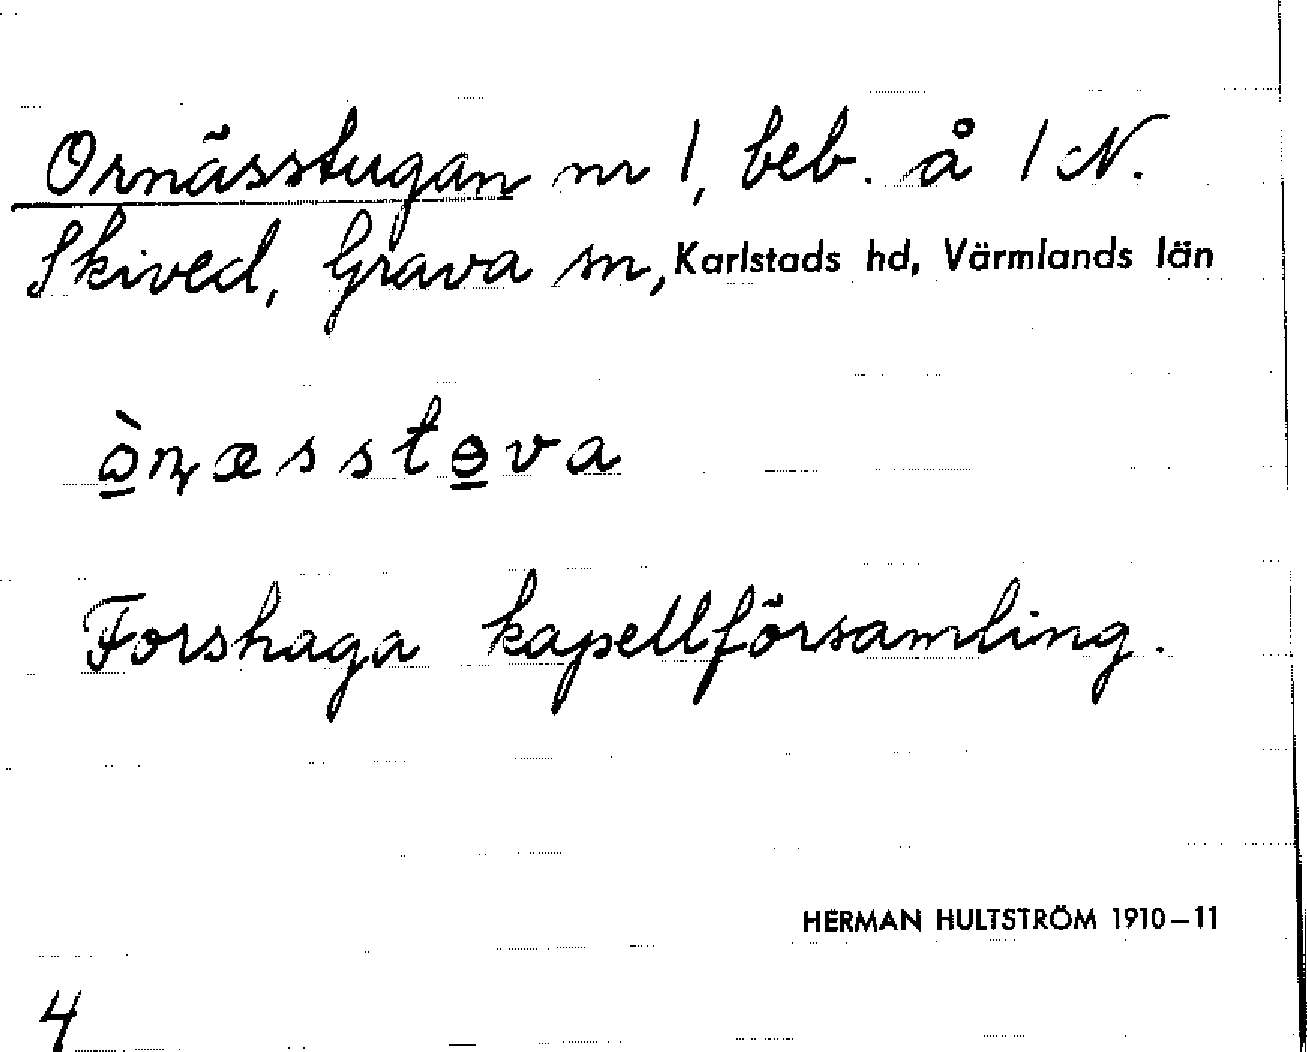 Ornässtugan nr 1, beb. å 1 N.
Skived, Grava sn, Karlstads hd, Värmlands län
Forshaga kapellförsamling.
HERMAN HULTSTRÖM 1910–11
4